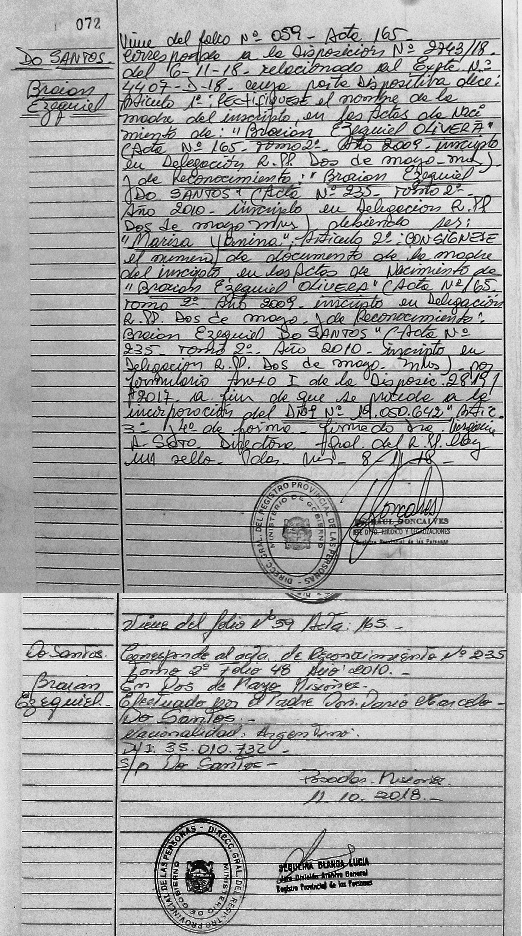 072
DO SANTOS
Braian
Ezequiel
Viene del folio Nº 059 - Acta 165.
Corresponde a la Disposición Nº 2743/18
del 6-11-18 - relacionado al Expte Nº
4407-D-18 - cuya parte Dispositiva dice:
Artículo 1º: RECTIFIQUESE el nombre de la
madre del inscripto, en las Actas de Naci
miento de: "Braian Ezequiel OLIVERA"
(Acta Nº 165 - Tomo 2º - Año 2009 - inscripto
en Delegación R.PP. Dos de mayo - mnes)
y de Reconocimiento: "Braian Ezequiel
DO SANTOS" (Acta Nº 235 - Tomo 2º -
Año 2010 - inscripto en Delegación R.PP
Dos de mayo mnes) debiendo ser:
"Marisa Yanina"; Artículo 2º: CONSIGNESE
el numero de documento de la madre
del inscripto, en las Actas de Nacimiento de
"Braian Ezequiel OLIVERA" (Acta Nº 165
Tomo 2º Año 2009 - inscripto en Delegación
R.PP. Dos de mayo - y de Reconocimiento:
Braian Ezequiel DO SANTOS" (Acta Nº
235 - Tomo 2º - Año 2010 - inscripto en
Delegación R.PP. Dos de mayo - mnes) - por
formulario Anexo I de la Disposic. 2819/
2017 a fin de que se proceda a la
incorporación del DNI Nº 19.050.642" Artic.
3º y 4º de forma - firmado Dra
A. SOTO Directora Gral. del R.PP. Hay
un sello. 8-11-18 -
DIRECC. GRAL. DEL REGISTRO PROVINCIAL DE LAS PERSONAS
MINISTERIO DE GOBIERNO
RAUL GONCALVES
Registro Provincial de las Personas
Viene del folio Nº 59 Acta: 165. -
Do Santos.
Braian
Ezequiel -
Corresponde al acta de Reconocimiento Nº 235
Tomo 2º Folio 48 Año: 2010. -
En Dos de Mayo Misiones.
Efectuado por el Padre Don: Dario Marcelo -
Do Santos. -
Nacionalidad: Argentino.
D.N.I. 35.010.732 -
S/p Do Santos -
Posadas. Misiones
11.10.2018. -
DIRECC. GRAL. DEL REGISTRO PROVINCIAL DE LAS PERSONAS
MINISTERIO DE GOBIERNO
SEQUEIRA BLANCA LUCIA
Jefa División Archivo General
Registro Provincial de las Personas